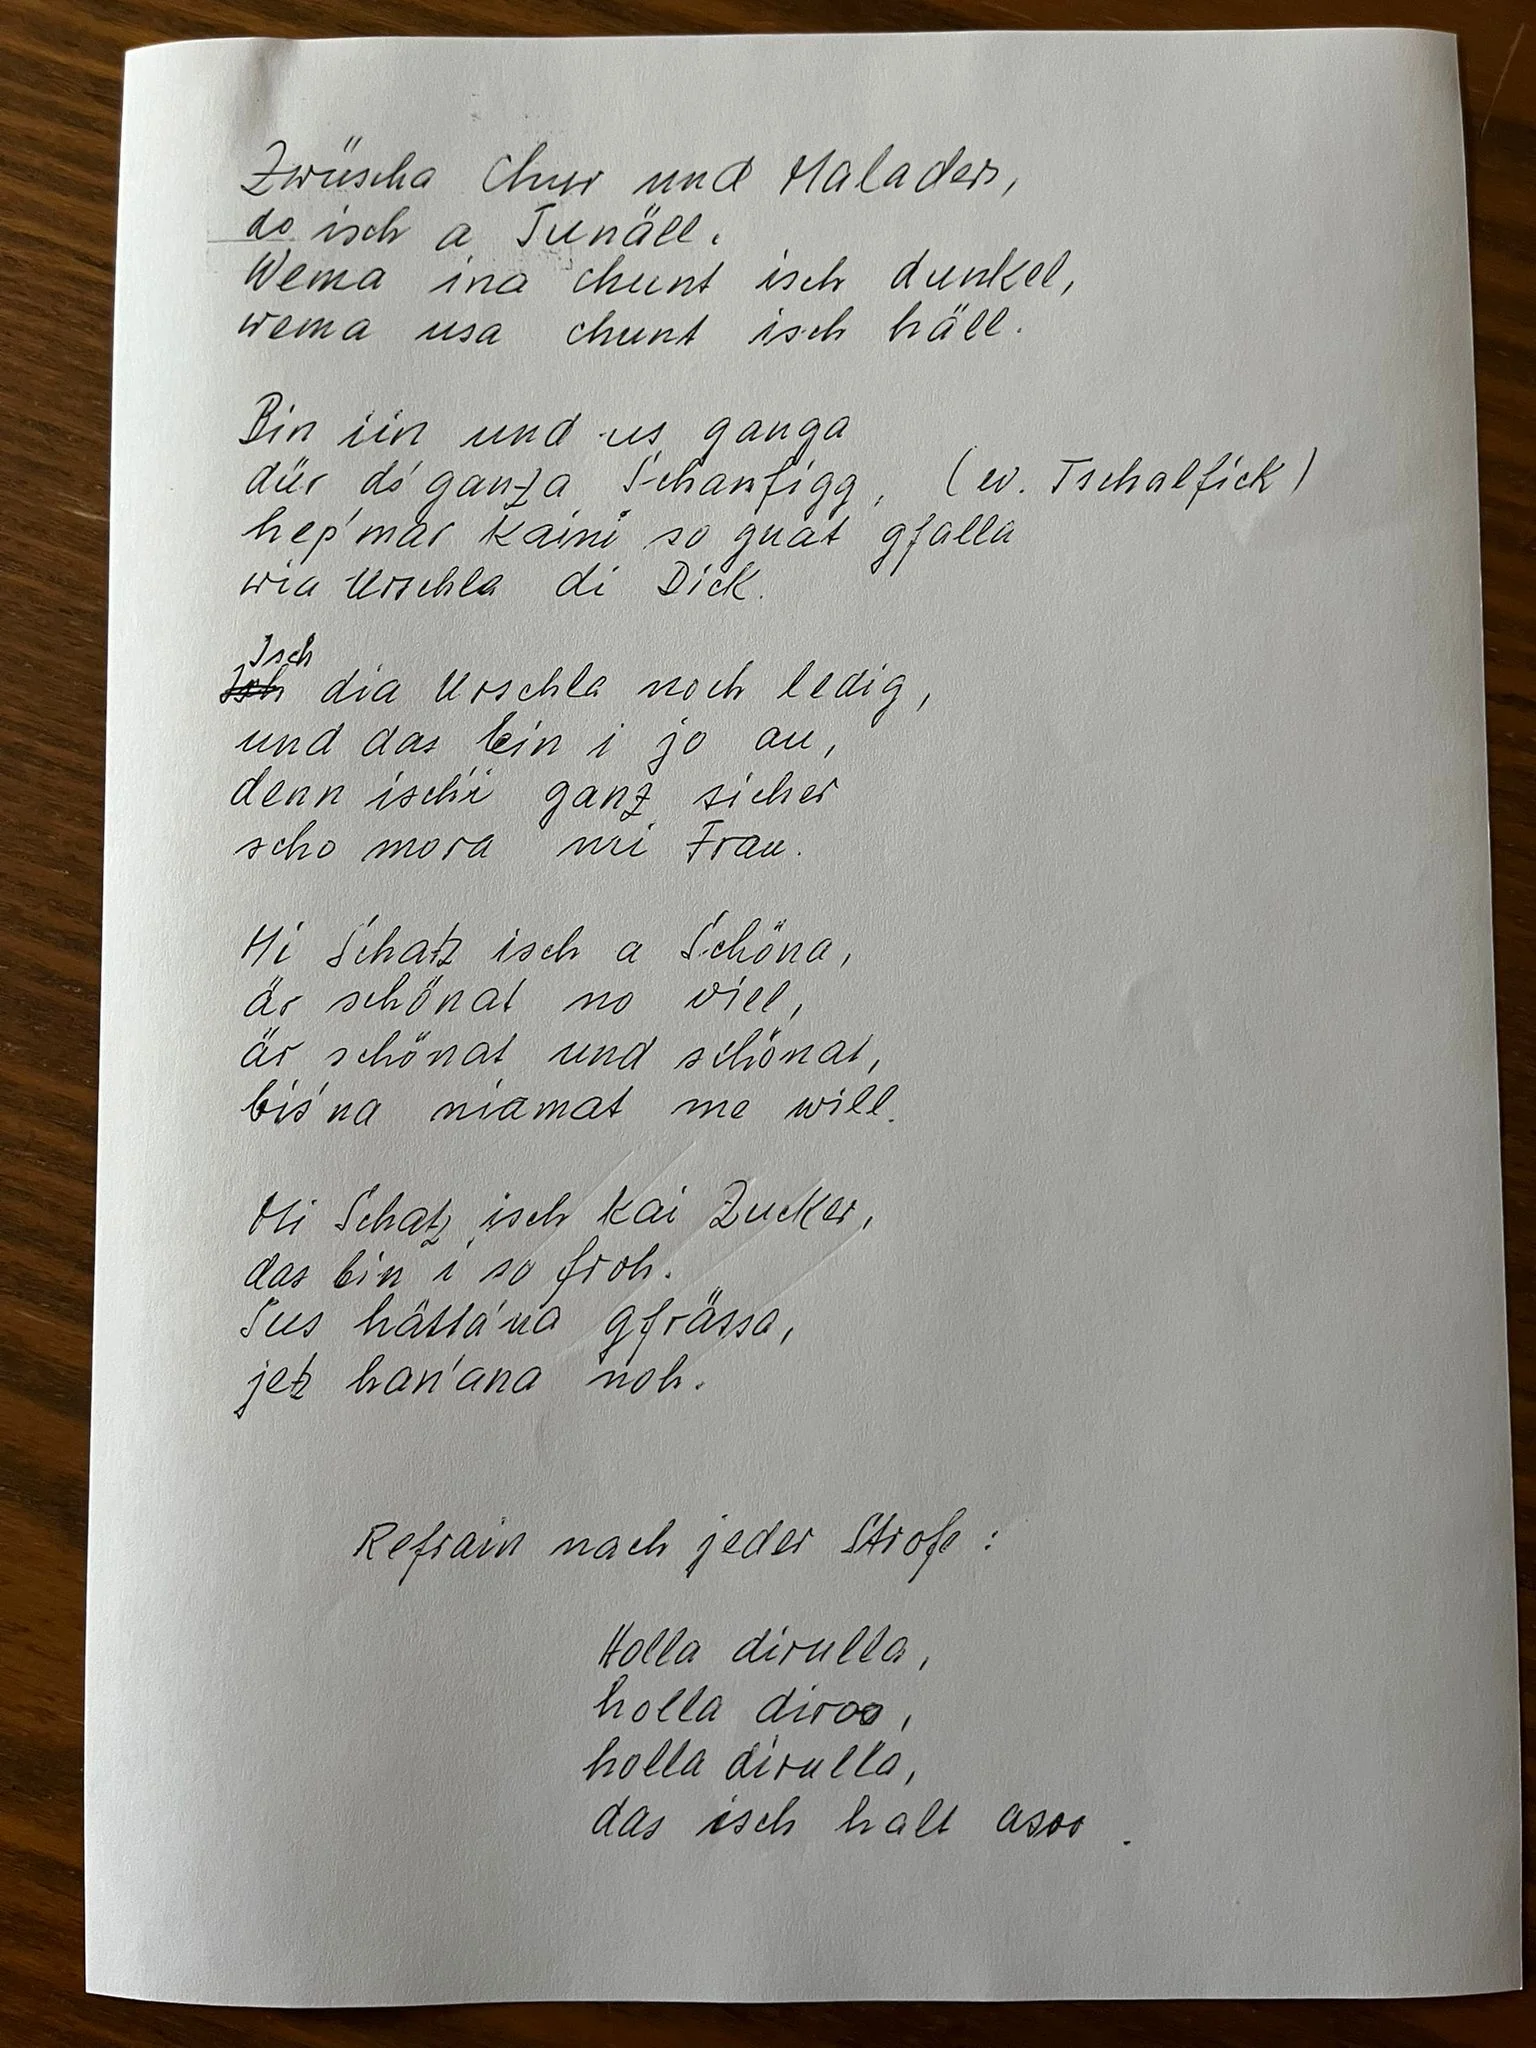 Zwüscha Chur und Maladers,
do isch a Tunäll.
Wema ina chunt isch dunkel,
wema usa chunt isch häll.
Bin iin und us ganga
dür ds'ganza Schanfigg, (ev. Tschalfick)
hep'mar kaini so guat gfalla
wia Urschla di Dick.
Isch
Isch dia Urschla noch ledig,
und das bin i jo au,
denn isch'i ganz sicher
scho mora mi Frau.
Mi Schatz isch a Schöna,
är schönat no viel,
är schönat und schönat,
bis'na niamat me will.
Mi Schatz isch kai Zucker,
das bin i so froh.
Sus hätta'na gfrässa,
jetz han'ana noh.
Refrain nach jeder Strofe:
Holla dirulla,
holla diroo,
holla dirulla,
das isch halt asoo.